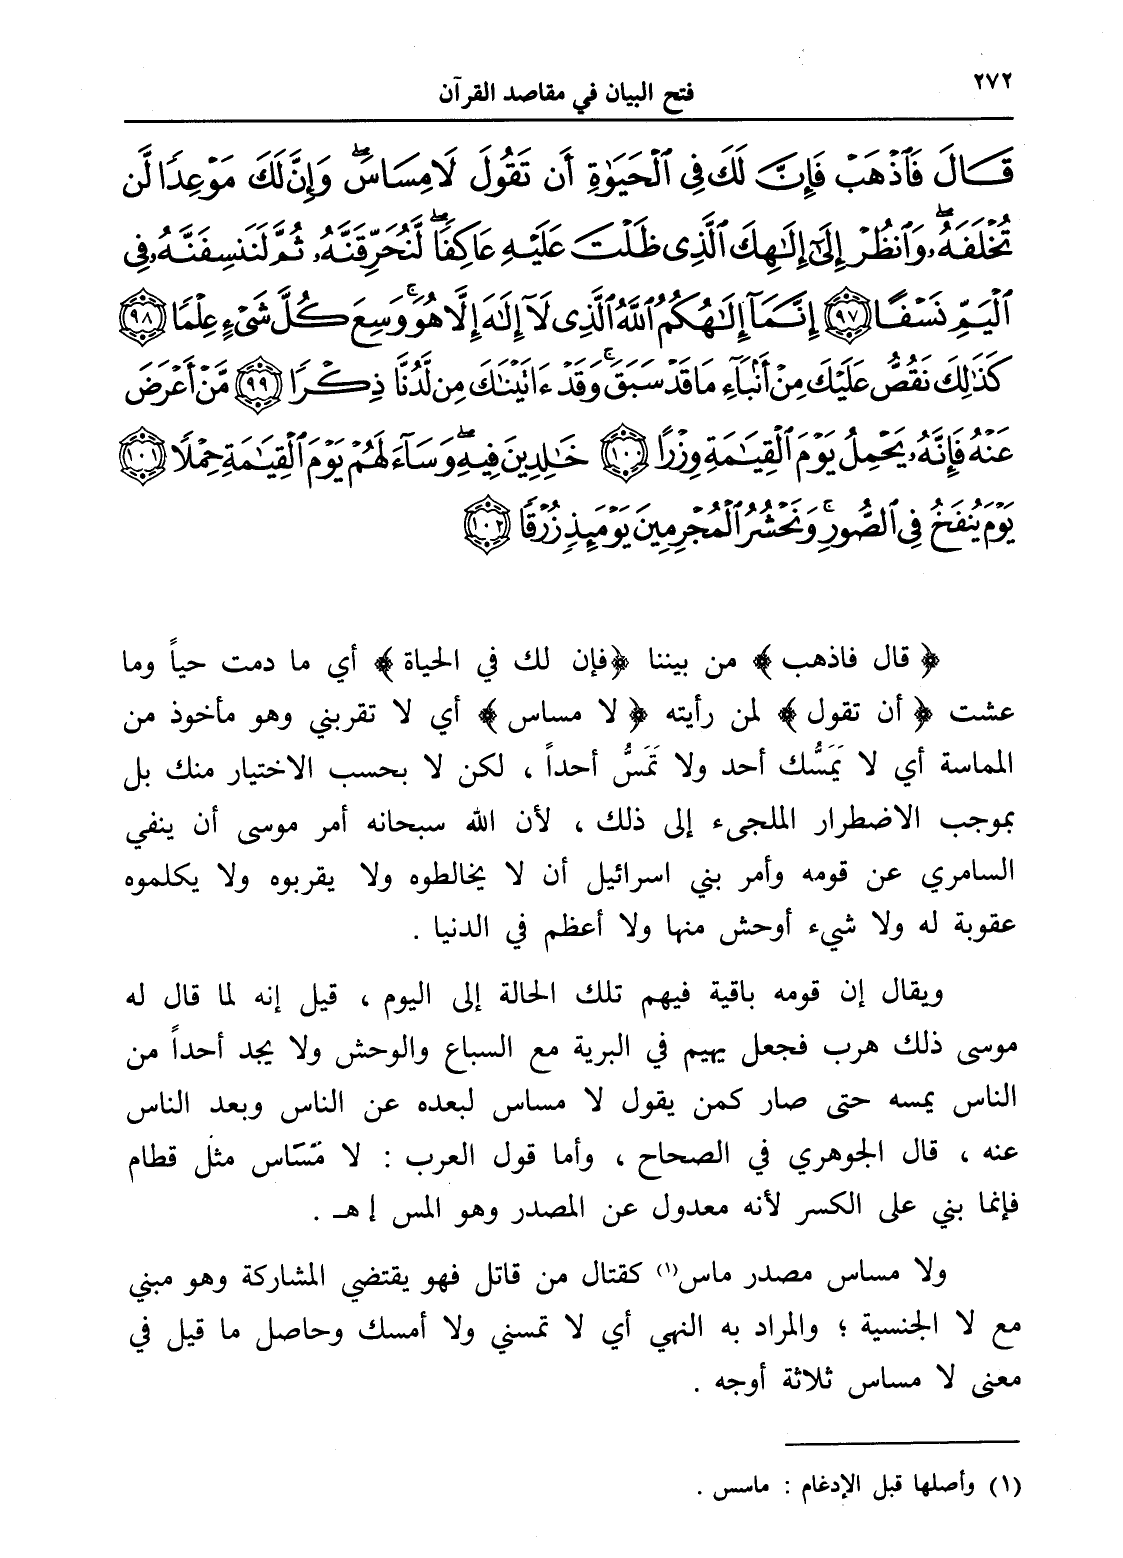 ٢٧٢
فتح البيان في مقاصد القرآن
قَالَ فَٱذْهَبْ فَإِنَّ لَكَ فِى ٱلْحَيَوٰةِ أَن تَقُولَ لَا مِسَاسَ ۖ وَإِنَّ لَكَ مَوْعِدًا لَّن
تُخْلَفَهُۥ ۖ وَٱنظُرْ إِلَىٰٓ إِلَٰهِكَ ٱلَّذِى ظَلْتَ عَلَيْهِ عَاكِفًا ۖ لَّنُحَرِّقَنَّهُۥ ثُمَّ لَنَنسِفَنَّهُۥ فِى
ٱلْيَمِّ نَسْفًا ﴿٩٧﴾ إِنَّمَآ إِلَٰهُكُمُ ٱللَّهُ ٱلَّذِى لَآ إِلَٰهَ إِلَّا هُوَ ۚ وَسِعَ كُلَّ شَىْءٍ عِلْمًا ﴿٩٨﴾
كَذَٰلِكَ نَقُصُّ عَلَيْكَ مِنْ أَنۢبَآءِ مَا قَدْ سَبَقَ ۚ وَقَدْ ءَاتَيْنَٰكَ مِن لَّدُنَّا ذِكْرًا ﴿٩٩﴾ مَّنْ أَعْرَضَ
عَنْهُ فَإِنَّهُۥ يَحْمِلُ يَوْمَ ٱلْقِيَٰمَةِ وِزْرًا ﴿١٠٠﴾ خَٰلِدِينَ فِيهِ ۖ وَسَآءَ لَهُمْ يَوْمَ ٱلْقِيَٰمَةِ حِمْلًا ﴿١٠١﴾
يَوْمَ يُنفَخُ فِى ٱلصُّورِ ۚ وَنَحْشُرُ ٱلْمُجْرِمِينَ يَوْمَئِذٍ زُرْقًا ﴿١٠٢﴾
﴿ قال فاذهب ﴾ من بيننا ﴿فإن لك في الحياة ﴾ أي ما دمت حياً وما
عشت ﴿ أن تقول ﴾ لمن رأيته ﴿ لا مساس ﴾ أي لا تقربني وهو مأخوذ من
المماسة أي لا يَمَسُّك أحد ولا تَمَسُّ أحداً ، لكن لا بحسب الاختيار منك بل
بموجب الاضطرار الملجىء إلى ذلك ، لأن الله سبحانه أمر موسى أن ينفي
السامري عن قومه وأمر بني اسرائيل أن لا يخالطوه ولا يقربوه ولا يكلموه
عقوبة له ولا شيء أوحش منها ولا أعظم في الدنيا .
ويقال إن قومه باقية فيهم تلك الحالة إلى اليوم ، قيل إنه لما قال له
موسى ذلك هرب فجعل يهيم في البرية مع السباع والوحش ولا يجد أحداً من
الناس يمسه حتى صار كمن يقول لا مساس لبعده عن الناس وبعد الناس
عنه ، قال الجوهري في الصحاح ، وأما قول العرب : لا مَسَاس مثل قطام
فإنما بني على الكسر لأنه معدول عن المصدر وهو المس إ هـ .
ولا مساس مصدر ماس(١) كقتال من قاتل فهو يقتضي المشاركة وهو مبني
مع لا الجنسية ؛ والمراد به النهي أي لا تمسني ولا أمسك وحاصل ما قيل في
معنى لا مساس ثلاثة أوجه .
(١) وأصلها قبل الإدغام : ماسس .